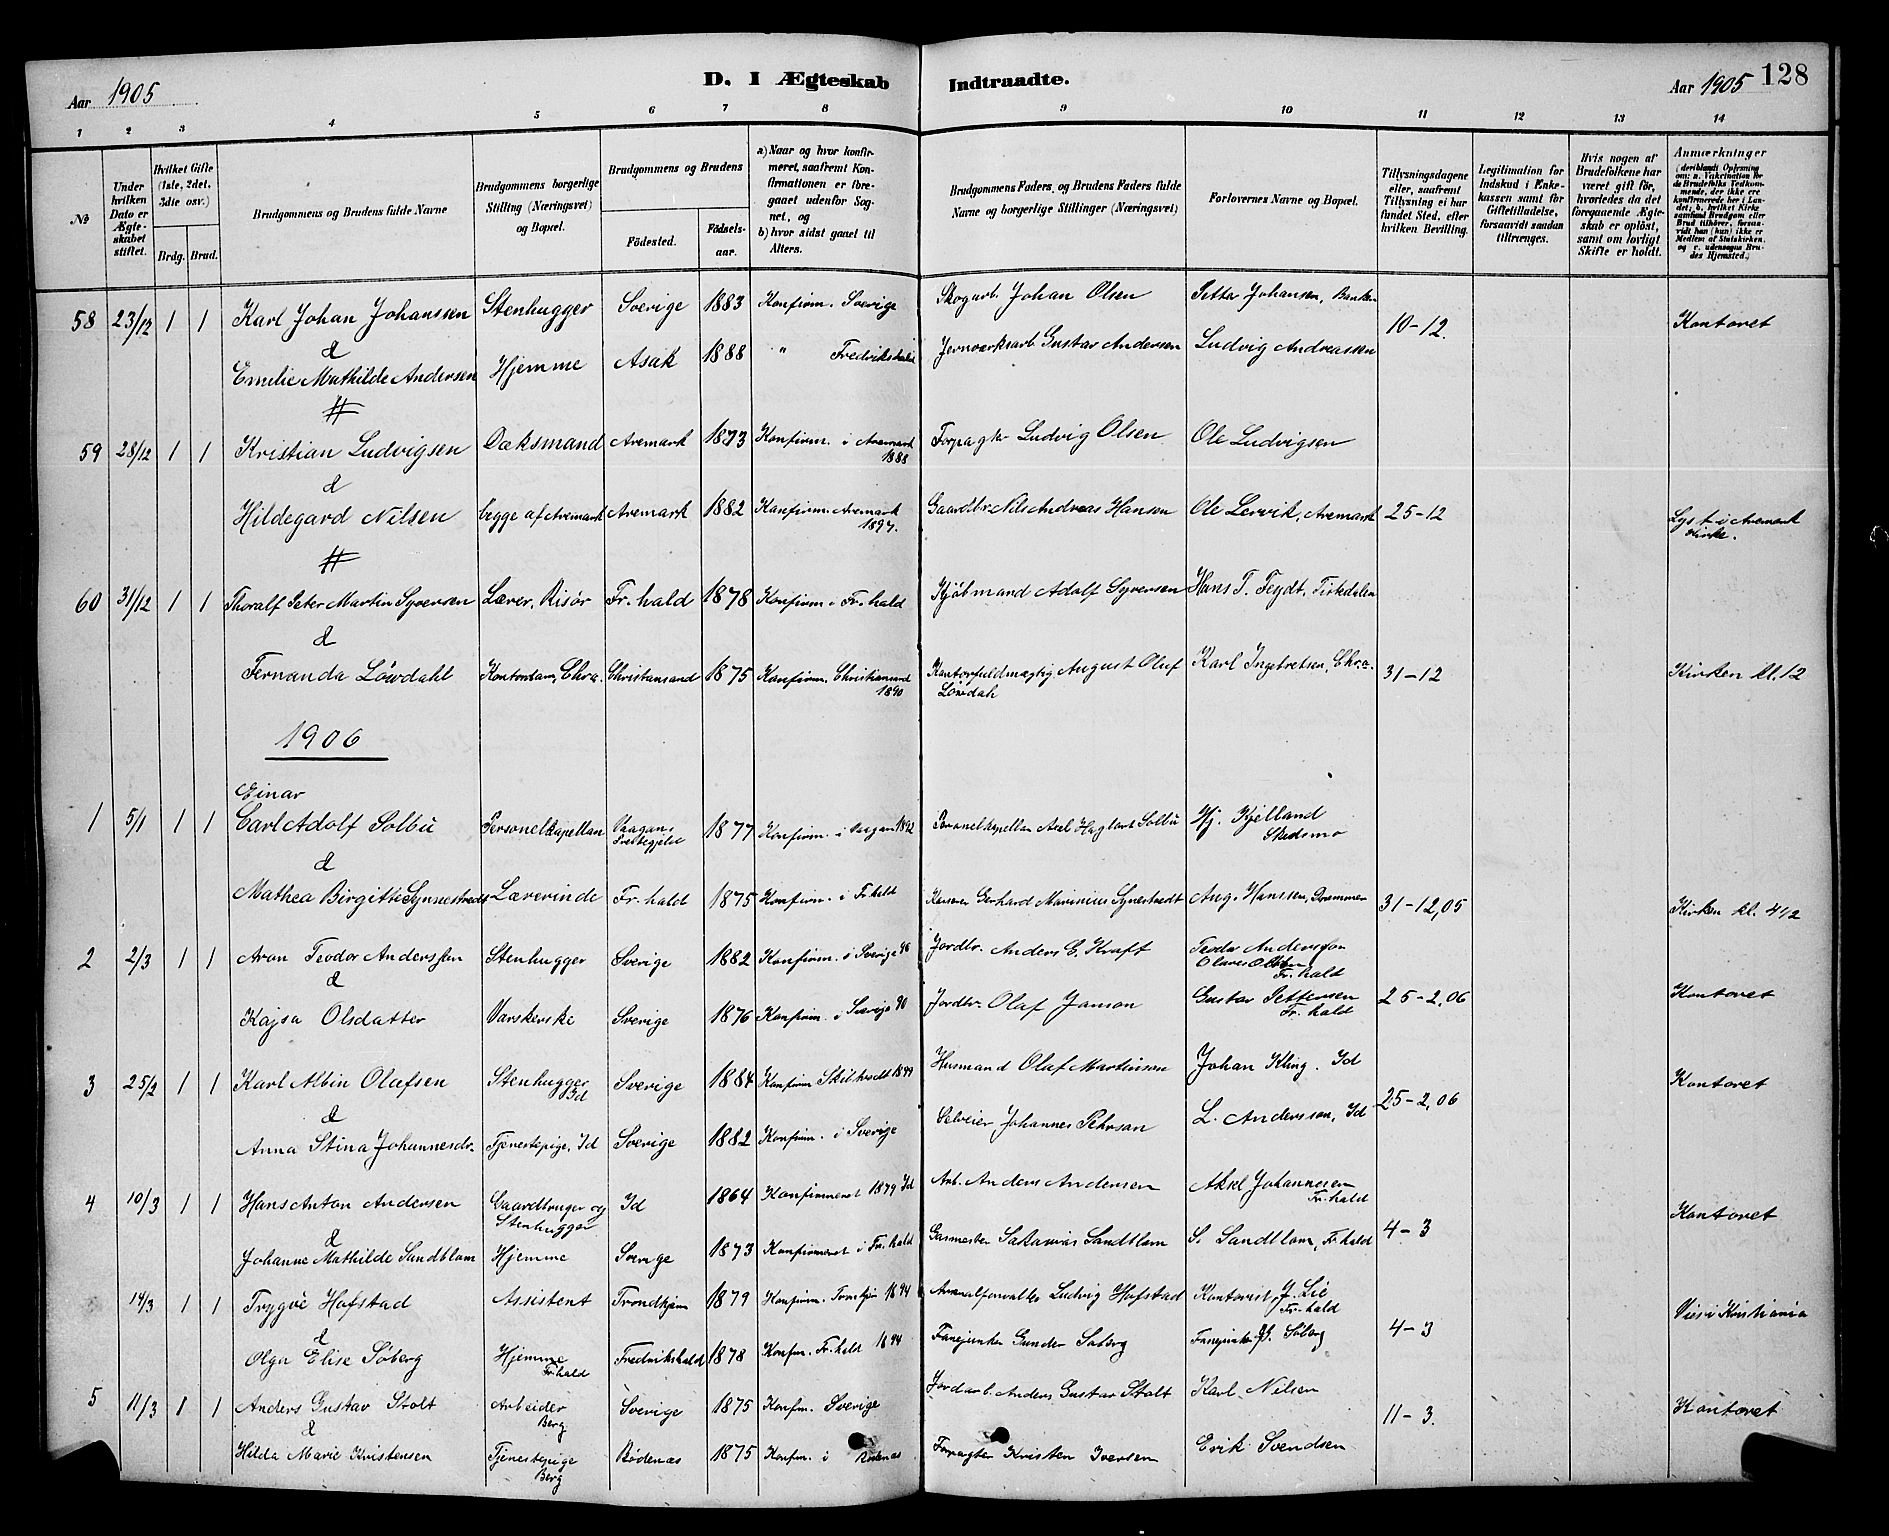 Aar 1905
D. I Ægteskab Indtraadte.
Aar 1905 128
1 2 3 4 5 6 7 8 9 10 11 12 13 14
№
Under hvilken Dato er Ægteskabet stiftet.
Hvilket Gifte (1ste, 2det, 3die osv.)
Brdg. Brud.
Brudgommens og Brudens fulde Navne
Brudgommens borgerlige Stilling (Næringsvei) og Bopæl.
Brudgommens og Brudens
Fødested. Fødselsaar.
a) Naar og hvor konfirmeret, saafremt Konfirmationen er foregaaet udenfor Sognet, og
b) hvor sidst gaaet til Alters.
Brudgommens Faders og Brudens Faders fulde Navne og borgerlige Stillinger (Næringsvei)
Forlovernes Navne og Bopæl.
Tillysningsdagene eller, saafremt Tillysning ei har fundet Sted, efter hvilken Bevilling.
Legitimation for Indskud i Enkekassen samt for Giftetilladelse, forsaavidt saadan tiltrænges.
Hvis nogen af Brudefolkene har været gift før, hvorledes da det foregaaende Ægteskab er opløst, samt om lovligt Skifte er holdt.
Anmærkninger
58 23/12 1 1 Karl Johan Johanssen Stenhugger Sverige 1883 Konfirm. Sverige Skogarb. Johan Olsen Petter Johansen, 10-12. Kontoret
&
Emilie Mathilde Andersen Hjemme Asak 1888 " Fredrikshald Jernverksarb Gustav Andersen Ludvig Andreassen
59 28/12 1 1 Kristian Ludvigsen Dæksmand Aremark 1873 Konfirm. i Aremark 1888 Forpagter Ludvig Olsen Ole Ludvigsen
&
Hildegard Nilsen begge af Aremark Aremark 1882 Konfirm. Aremark 1897. Gaardbr. Nils Andreas Hansen Ole Lervik, Aremark 25-12 Lyst i Aremark Kirke.
60 31/12 1 1 Thoralf Peter Martin Syversen Lærer, Risør Fr.hald 1878 Konfirm i Fr.hald Kjøbmand Adolf Syversen Hans T. Feydt, Tistedalen
&
Fernanda Løwdahl Kontordam, Chra. Christiansand 1875 Konfirm. Christiansand 1890 Kontorfuldmægtig August Oluf Løwdah Karl Ingebretsen, Chra. 31-12 Kirken kl. 12
1906
1 5/1 1 1 Einar Carl Adolf Solbu Personelkapellan Vaagan Prestegjeld 1877 Konfirm. i Vaagan 1892 Personelkapellan Axel Solbu Hj. Kjelland Skedsmo
&
Mathea Birgitte Synnestvedt Lærerinde Fr.hald 1875 Konfirm. i Fr.hald Gerhard Marinius Synestvedt Aug. Hanssen, Drammen 31-12,05 Kirken kl. 4 1/2
2 2/3 1 1 Aron Teodor Anderssen Stenhugger Sverige 1882 Konfirm. i Sverige 96 Jordbr. Anders E. Kraft Teodor Andersson Fr.hald
&
Kajsa Olsdatter Varskerske Sverige 1876 Konfirm. i Sverige 90 Jordbr. Olaf Janson Gustav Pettersen Fr.hald 25-2,06 Kontoret
3 25/2 1 1 Karl Albin Olafsen Stenhugger Id Sverige 1884 Konfirm 1899 Husmand Olaf Martinson Johan Kling. Id Kontoret
&
Anna Stina Johannesdr. Tjenestepige, Id Sverige 1882 Konfirm. i Sverige Selveier Johannes Pehrsan L. Andersson, Id 25-2,06
4 10/3 1 1 Hans Anton Andersen Gaardbruger og Stenhugger Id 1864 Konfirmeret 1879 Id Arb. Anders Andersen Aksel Johannesen Fr.hald
&
Johanne Mathilde Sandblom Hjemme Sverige 1873 Konfirmeret i Fr.hald Gasmester Sandblom S. Sandblom, Fr.hald 4-3 Kontoret
14/3 1 1 Trygve Hofstad Assistent Trondhjem 1879 Konfirm. Tromsø 1894 Ludvig Hofstad Kontorist J. Lie Fr.hald
&
Olga Elise Søberg Hjemme Fr.hald Fredrikshald 1878 Konfirm. Fr.hald 1894 Fanejunker Gunder Søberg Fanejunker Søberg 4-3 Viet i Kristiania
5 11/3 1 1 Anders Gustav Stolt Arbeider Berg Sverige 1875 Konfirm. Sverige Jordarb. Anders Gustav Stolt Karl Nilsen
&
Hilda Marie Kristensen Tjenestepige Berg Rødenæs 1875 Konfirm. i Rødenæs Forpagter Kristen Iversen Erik Svendsen 11-3. Kontoret